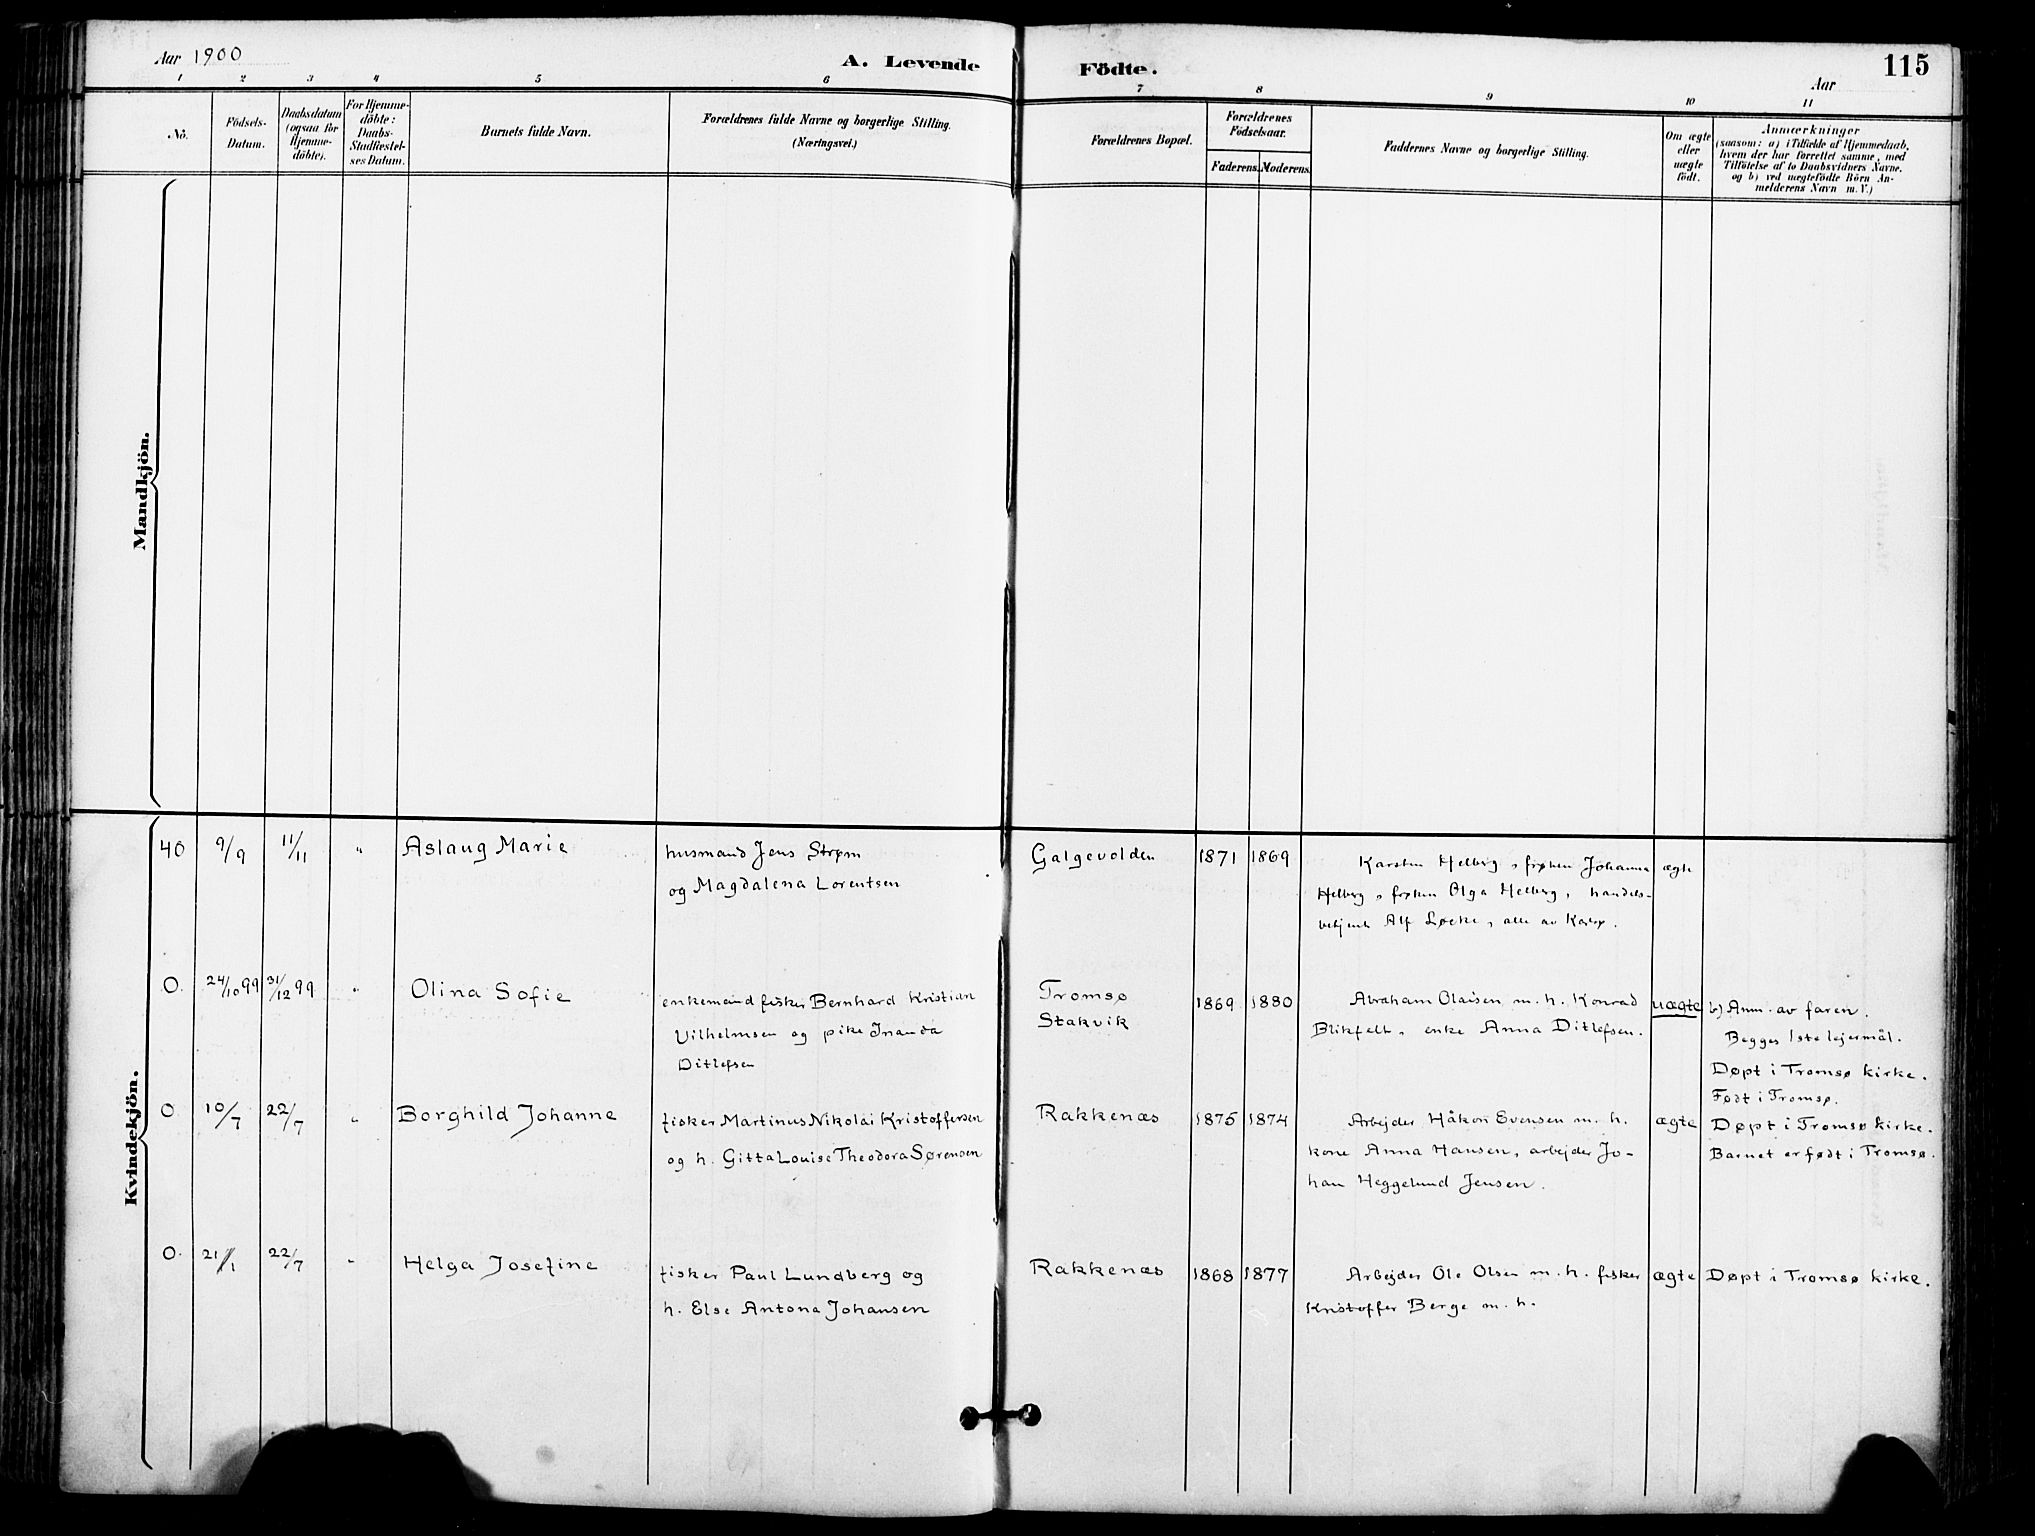 Aar 1900
A. Levende
Födte.
Aar
115
1 2 3 4 5 6 7 8 9 10 11
No.
Födsels-
Datum.
Daabsdatum
(ogsaa for
Hjemme-
döbte).
For Hjemme-
döbte:
Daabs-
Stadfæstel-
ses Datum.
Barnets fulde Navn.
Forældrenes fulde Navne og borgerlige Stilling.
(Næringsvei.)
Forældrenes Bopæl.
Forældrenes
Födselsaar.
Faderens. Moderens.
Faddernes Navne og borgerlige Stilling.
Om ægte
eller
uægte
födt.
Anmærkninger
(saasom: a) i Tilfælde af Hjemmedaab,
hvem der har forrettet samme, med
Tilföielse af to Daabsvidners Navne.
og b) ved uægtefödte Börn An-
melderens Navn m. V.)
Mandkjön.
Kvindekjön.
40 9/9 11/11 " Aslaug Marie
husmand Jens Strøm
og Magdalena Lorentsen
Galgevolden 1871 1869
Karsten Helberg, frøken Johanna
Helberg, frøken Olga Helberg, handels-
betjent Alf Løcke, alle av Karlsø.
ægte
0. 24/10 99 31/12 99 " Olina Sofie
enkemand fisker Bernhard Kristian
Vilhelmsen og pike Inanda
Ditlefsen
Tromsø
Stakvik
1869 1880
Abraham Olaisen m. h. Konrad
Blikfelt, enke Anna Ditlefsen.
uægte
b) Anm. av faren.
Begges 1ste lejermål.
Døpt i Tromsø kirke.
Født i Tromsø.
0 10/7 22/7 " Borghild Johanne
fisker Martinus Nikolai Kristoffersen
og h. Gitta Louise Theodora Sørensen
Rakkenæs 1875 1874
Arbejder Håkon Evensen m. h.
kone Anna Hansen, arbejder Jo-
han Heggelund Jensen.
ægte
Døpt i Tromsø kirke.
Barnet er født i Tromsø.
0. 21/1 22/7 " Helga Josefine
fisker Paul Lundberg og
h. Else Antona Johansen
Rakkenæs 1868 1877
Arbejder Ole Olsen m. h. fisker
Kristoffer Berge m. h.
ægte
Døpt i Tromsø kirke.